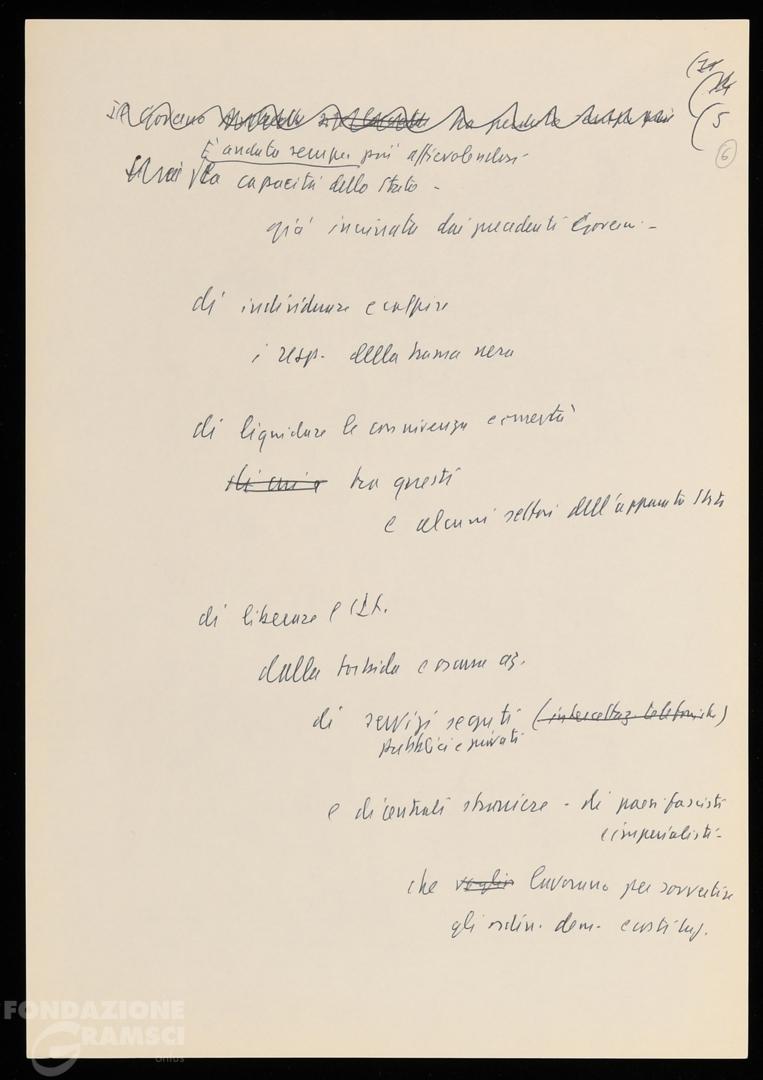 Il Governo ha perduto sempre più
È andata sempre più affievolendosi -
la capacità dello Stato -
già incrinata dai precedenti Governi -
di individuare e colpire
i resp. della trama nera
di liquidare le connivenze e omertà
tra questi
e alcuni settori dell'apparato Stato
di liberare l'It.
dalla torbida e oscura az.
di servizi segreti (intercettaz. telefoniche)
pubblici e privati
e di centrali straniere - di paesi fascisti
e imperialisti -
che voglio lavorano per sovvertire
gli ordin. dem. e costituz.
5
6
FONDAZIONE
GRAMSCI
onlus